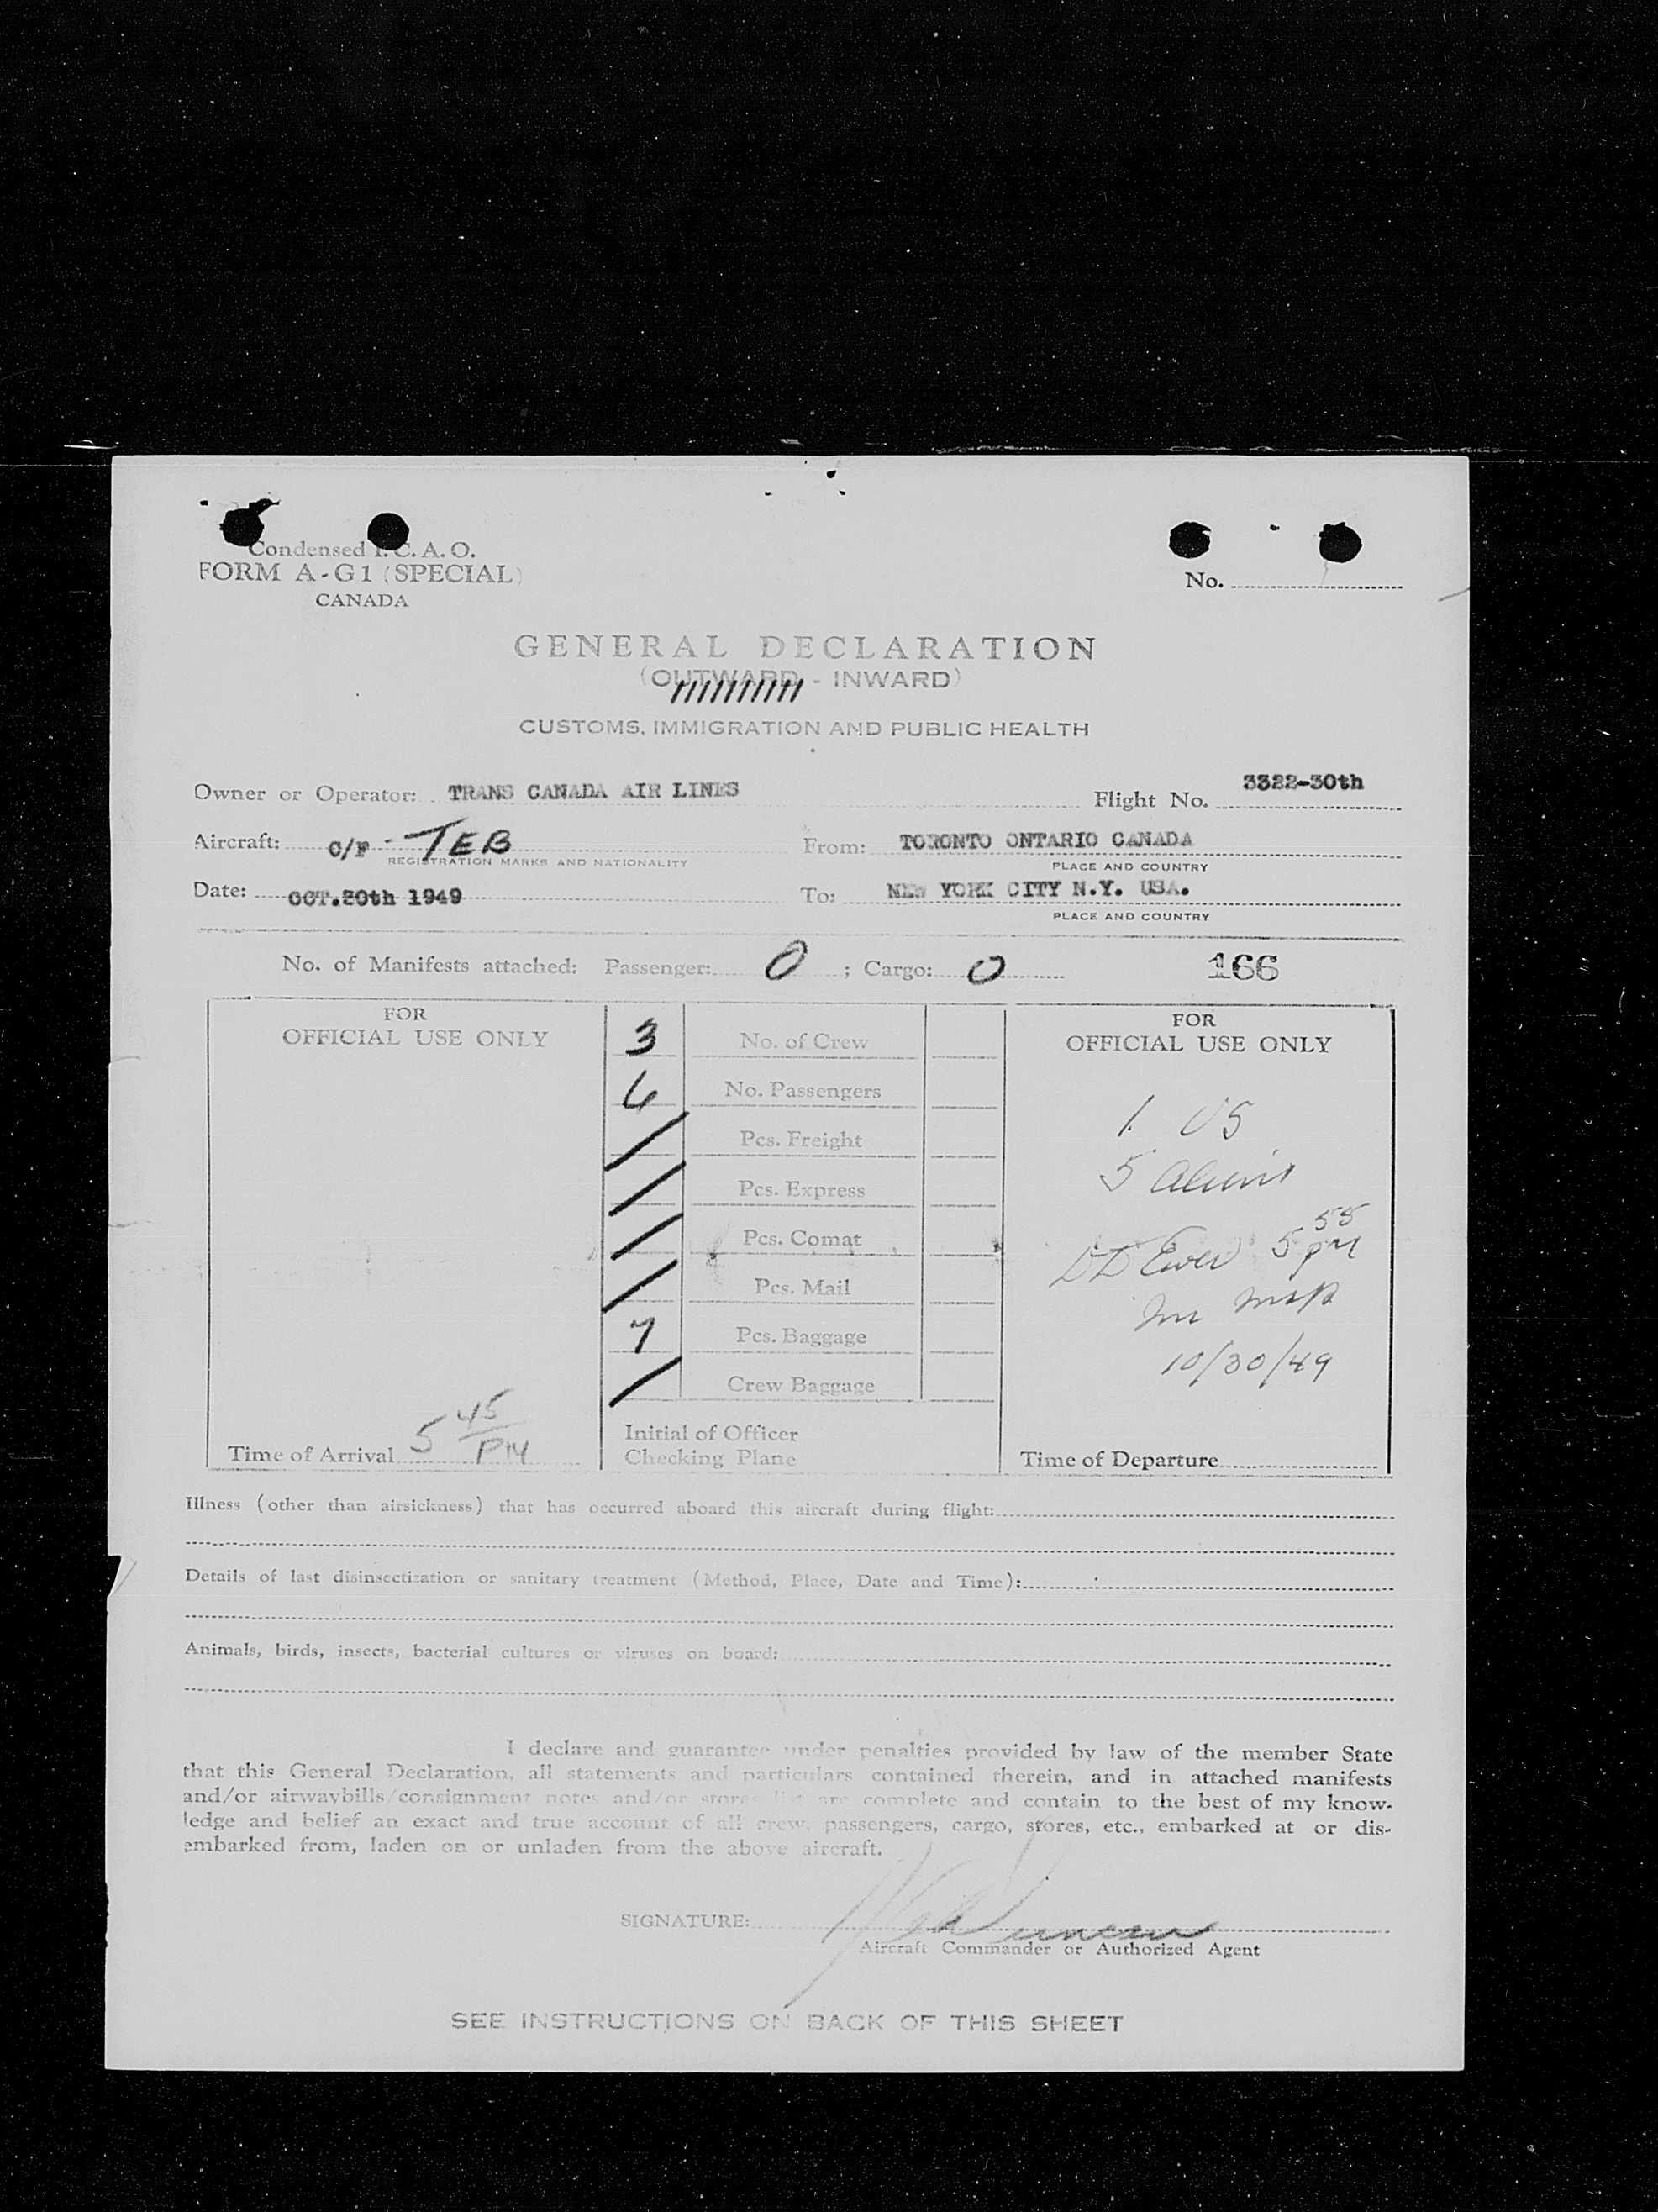 Condensed I. C. A. O.
FORM A-G1 (SPECIAL)
CANADA
No.
GENERAL DECLARATION
(OUTWARD - INWARD)
CUSTOMS, IMMIGRATION AND PUBLIC HEALTH
Owner or Operator: TRANS CANADA AIR LINES
Flight No. 3322-30th
Aircraft: C/F - TEB
REGISTRATION MARKS AND NATIONALITY
From: TORONTO ONTARIO CANADA
PLACE AND COUNTRY
Date: OCT.30th 1949
To: NEW YORK CITY N.Y. USA.
PLACE AND COUNTRY
No. of Manifests attached: Passenger: 0 ; Cargo: 0
166
FOR
OFFICIAL USE ONLY
Time of Arrival 5 45 PM
3 No. of Crew
6 No. Passengers
/ Pcs. Freight
/ Pcs. Express
/ Pcs. Comat
/ Pcs. Mail
7 Pcs. Baggage
/ Crew Baggage
Initial of Officer
Checking Plane
FOR
OFFICIAL USE ONLY
1 US
5 Aliens
5 55 PM
10/30/49
Time of Departure
Illness (other than airsickness) that has occurred aboard this aircraft during flight:
Details of last disinsectization or sanitary treatment (Method, Place, Date and Time):
Animals, birds, insects, bacterial cultures or viruses on board:
I declare and guarantee under penalties provided by law of the member State
that this General Declaration, all statements and particulars contained therein, and in attached manifests
and/or airwaybills/consignment notes and/or stores list are complete and contain to the best of my know-
ledge and belief an exact and true account of all crew, passengers, cargo, stores, etc., embarked at or dis-
embarked from, laden on or unladen from the above aircraft.
SIGNATURE: Duncan
Aircraft Commander or Authorized Agent
SEE INSTRUCTIONS ON BACK OF THIS SHEET